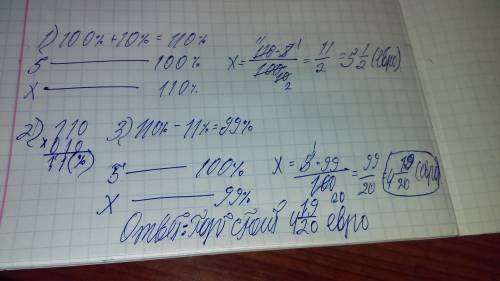 1) 100% + 10% = 110%
5 — 100%
x — 110%
x = 110·5/100 = 11/2 = 5 1/2 (евро)
2) 110
× 0,10
11(%)
3) 110% − 11% = 99%
5 — 100%
x — 99%
x = 5·99/100 = 99/20 = 4 19/20 (евро)
Ответ: стоит 4 19/20 евро